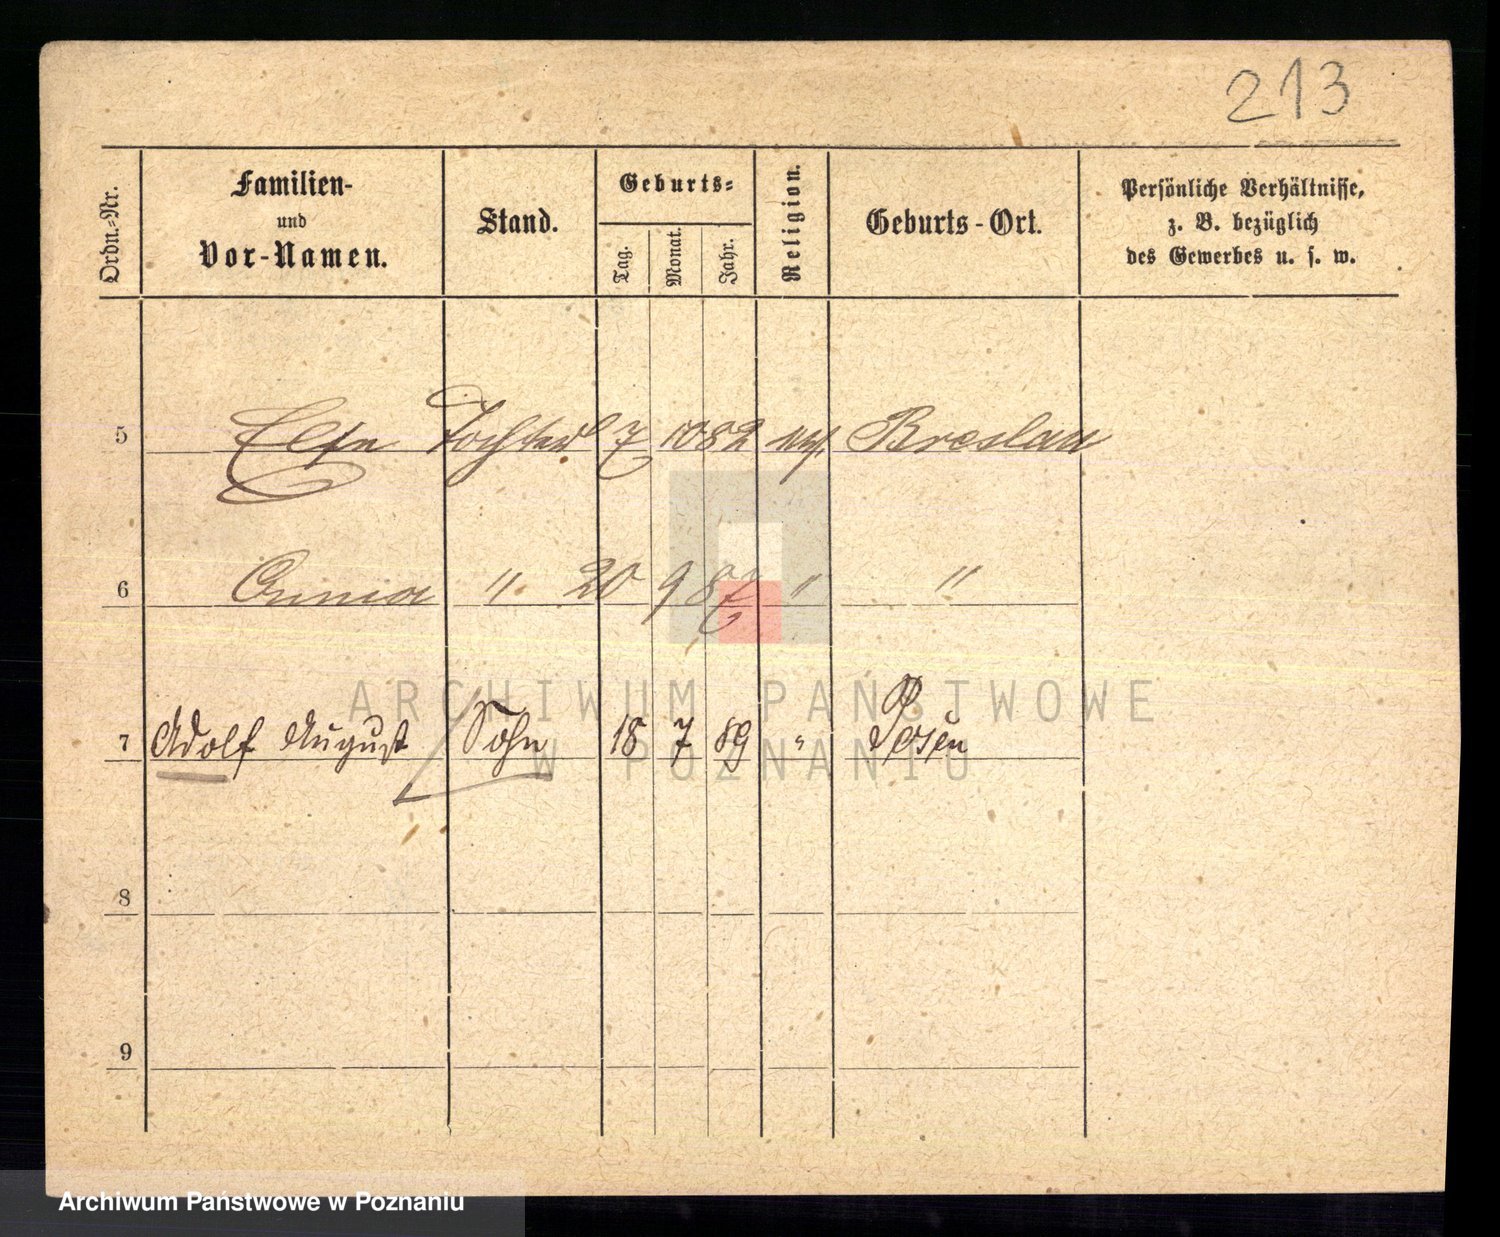 213
Ordn.-Nr.
Familien-
und
Vor-Namen.
Stand.
Geburts-
Tag.
Monat.
Jahr.
Religion.
Geburts-Ort.
Persönliche Verhältnisse,
z. B. bezüglich
des Gewerbes u. s. w.
5 Else Tochter 7 10 82 Breslau
6 Anna " 20 9 87 " "
7 Adolf August Sohn 18 7 89 " Posen
8
9
ARCHIWUM PAŃSTWOWE
W POZNANIU
Archiwum Państwowe w Poznaniu